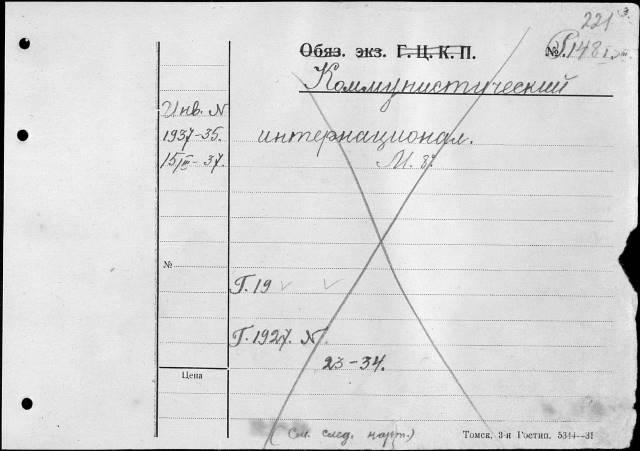 221
Обяз. экз. Г. Ц. К. П. №
Коммунистический
Инв. N
1937-35.
интернационал.
15/III-37.
М. 87.
№
Г. 19
Г. 1927. N.
23-34.
Цена
(См. след. карт.)
Томск, 3-я Гостип. 5344—31